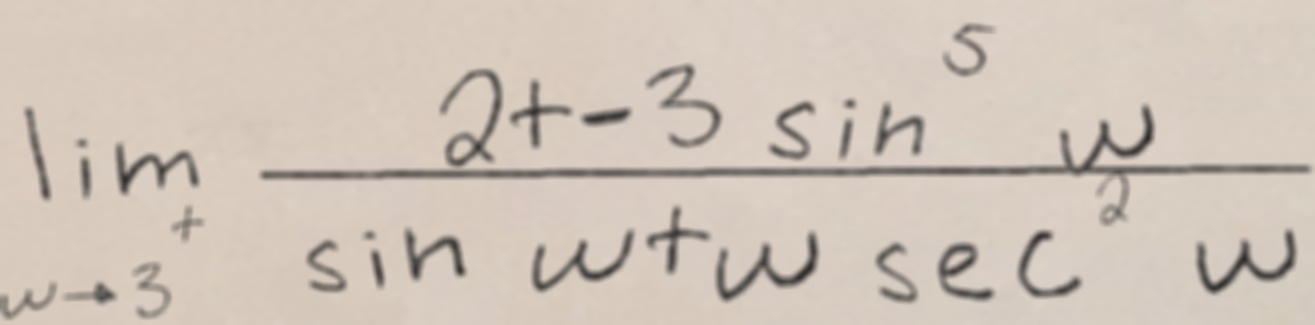 \lim_{w \to 3^+} \frac{2 + -3 \sin^5 w}{\sin w + w \sec^2 w}